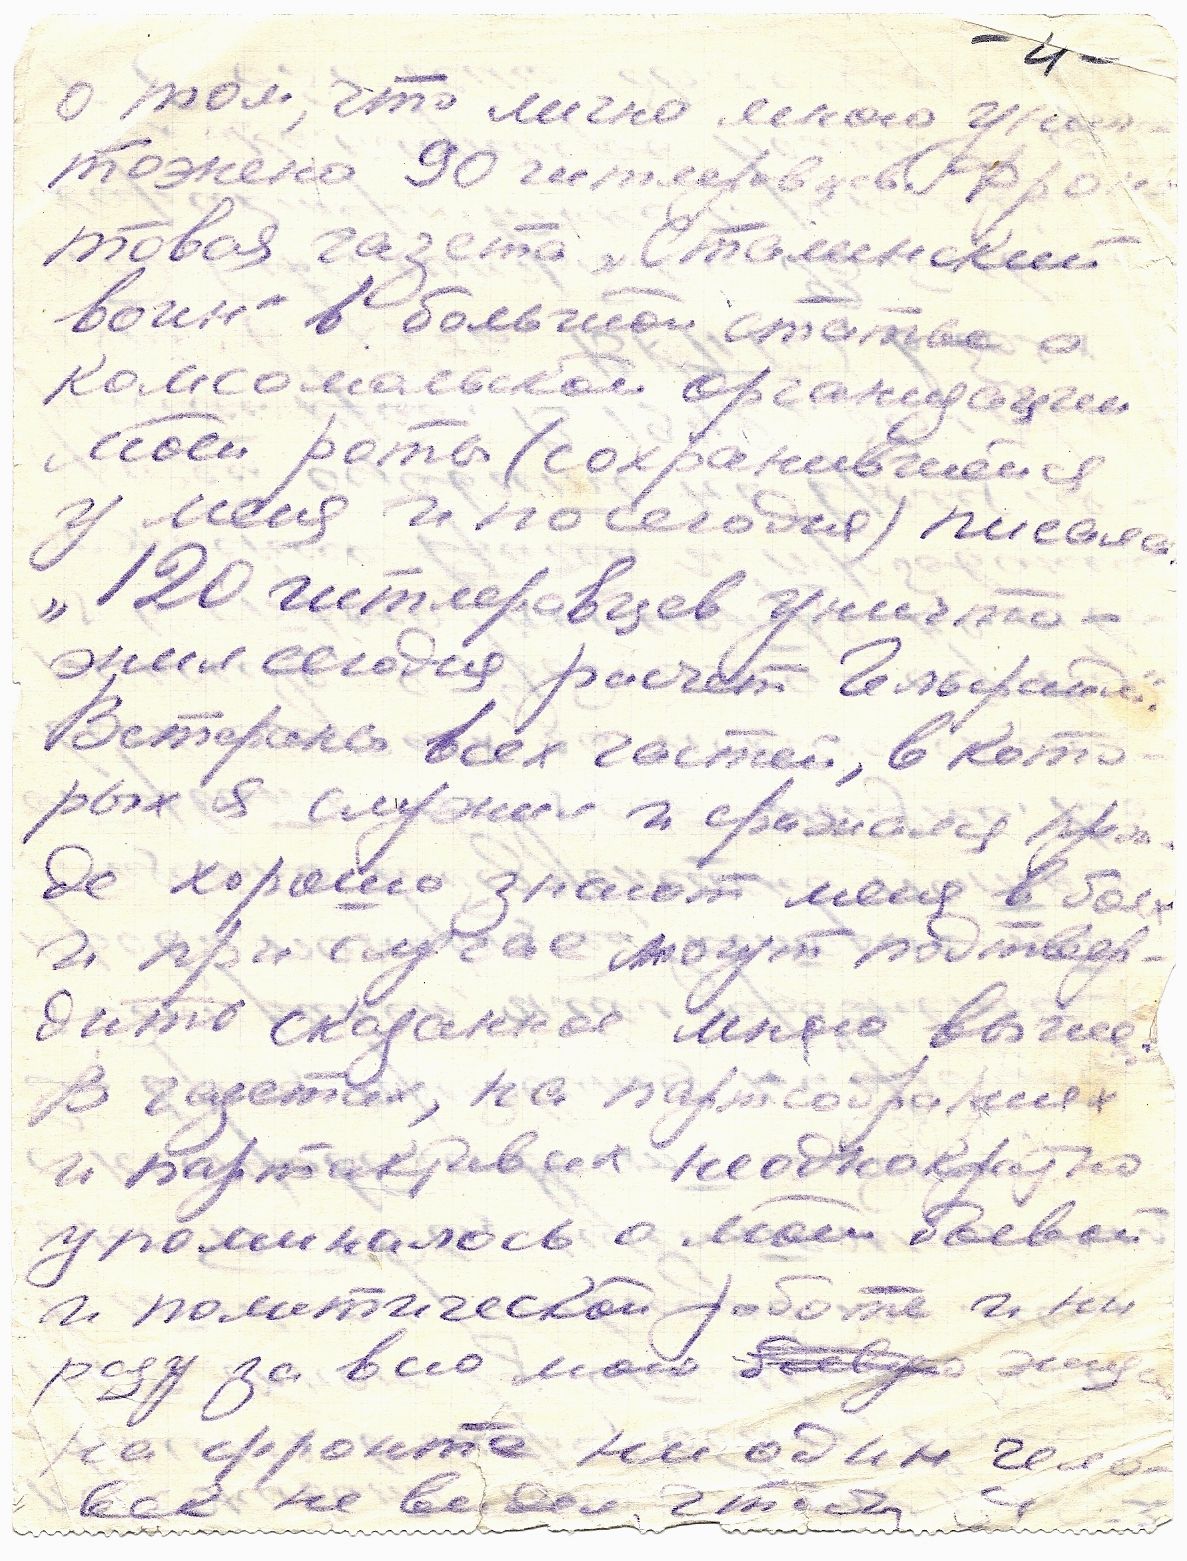 -4-
о том, что лично мною унич-
тожено 90 гитлеровцев. Фрон-
товая газета „Сталинский
воин" в большой статье о
комсомольской организации
моей роты (сохранившейся
у меня и по сегодня) писала
„120 гитлеровцев уничто-
жил сегодня расчет
Ветераны всех частей, в кото-
рых я служил и сражался
хорошо знают меня в боях
и при случае могут подтвер-
дить сказанное мною выше.
В газетах, на партсобраниях
и партактивах неоднократно
упоминалось о моей боевой
и политической работе и ни
разу за всю мою боевую
на фронте ни один чело-
век не видел чтобы я